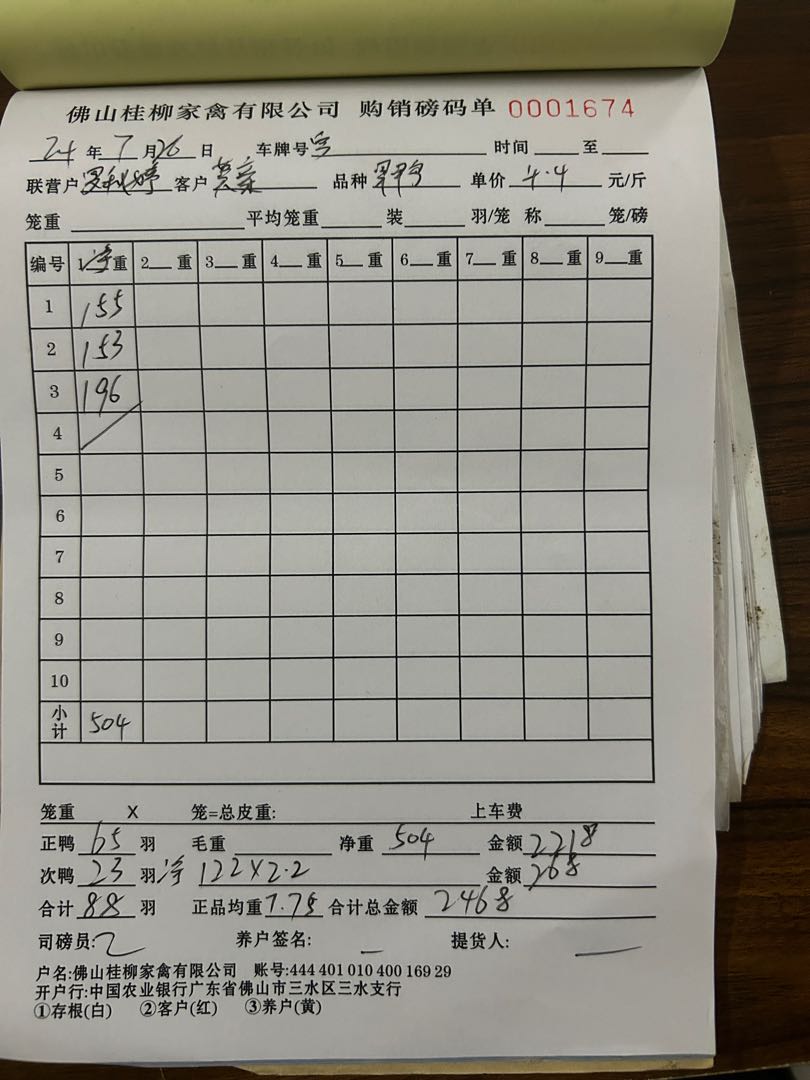 佛山桂柳家禽有限公司 购销磅码单 0001674
24 年 7 月 26 日 车牌号 时间 至
联营户 客户 品种 单价 4.4 元/斤
笼重 平均笼重 装 羽/笼 称 笼/磅
编号 1净重 2 重 3 重 4 重 5 重 6 重 7 重 8 重 9 重
1 155
2 153
3 196
4
5
6
7
8
9
10
小计 504
笼重 X 笼=总皮重: 上车费
正鸭 65 羽 毛重 净重 504 金额 2218
次鸭 23 羽 净 122X2.2 金额 268
合计 88 羽 正品均重 7.75 合计总金额 2468
司磅员: 养户签名: 提货人:
户名:佛山桂柳家禽有限公司 账号:444 401 010 400 169 29
开户行:中国农业银行广东省佛山市三水区三水支行
①存根(白) ②客户(红) ③养户(黄)